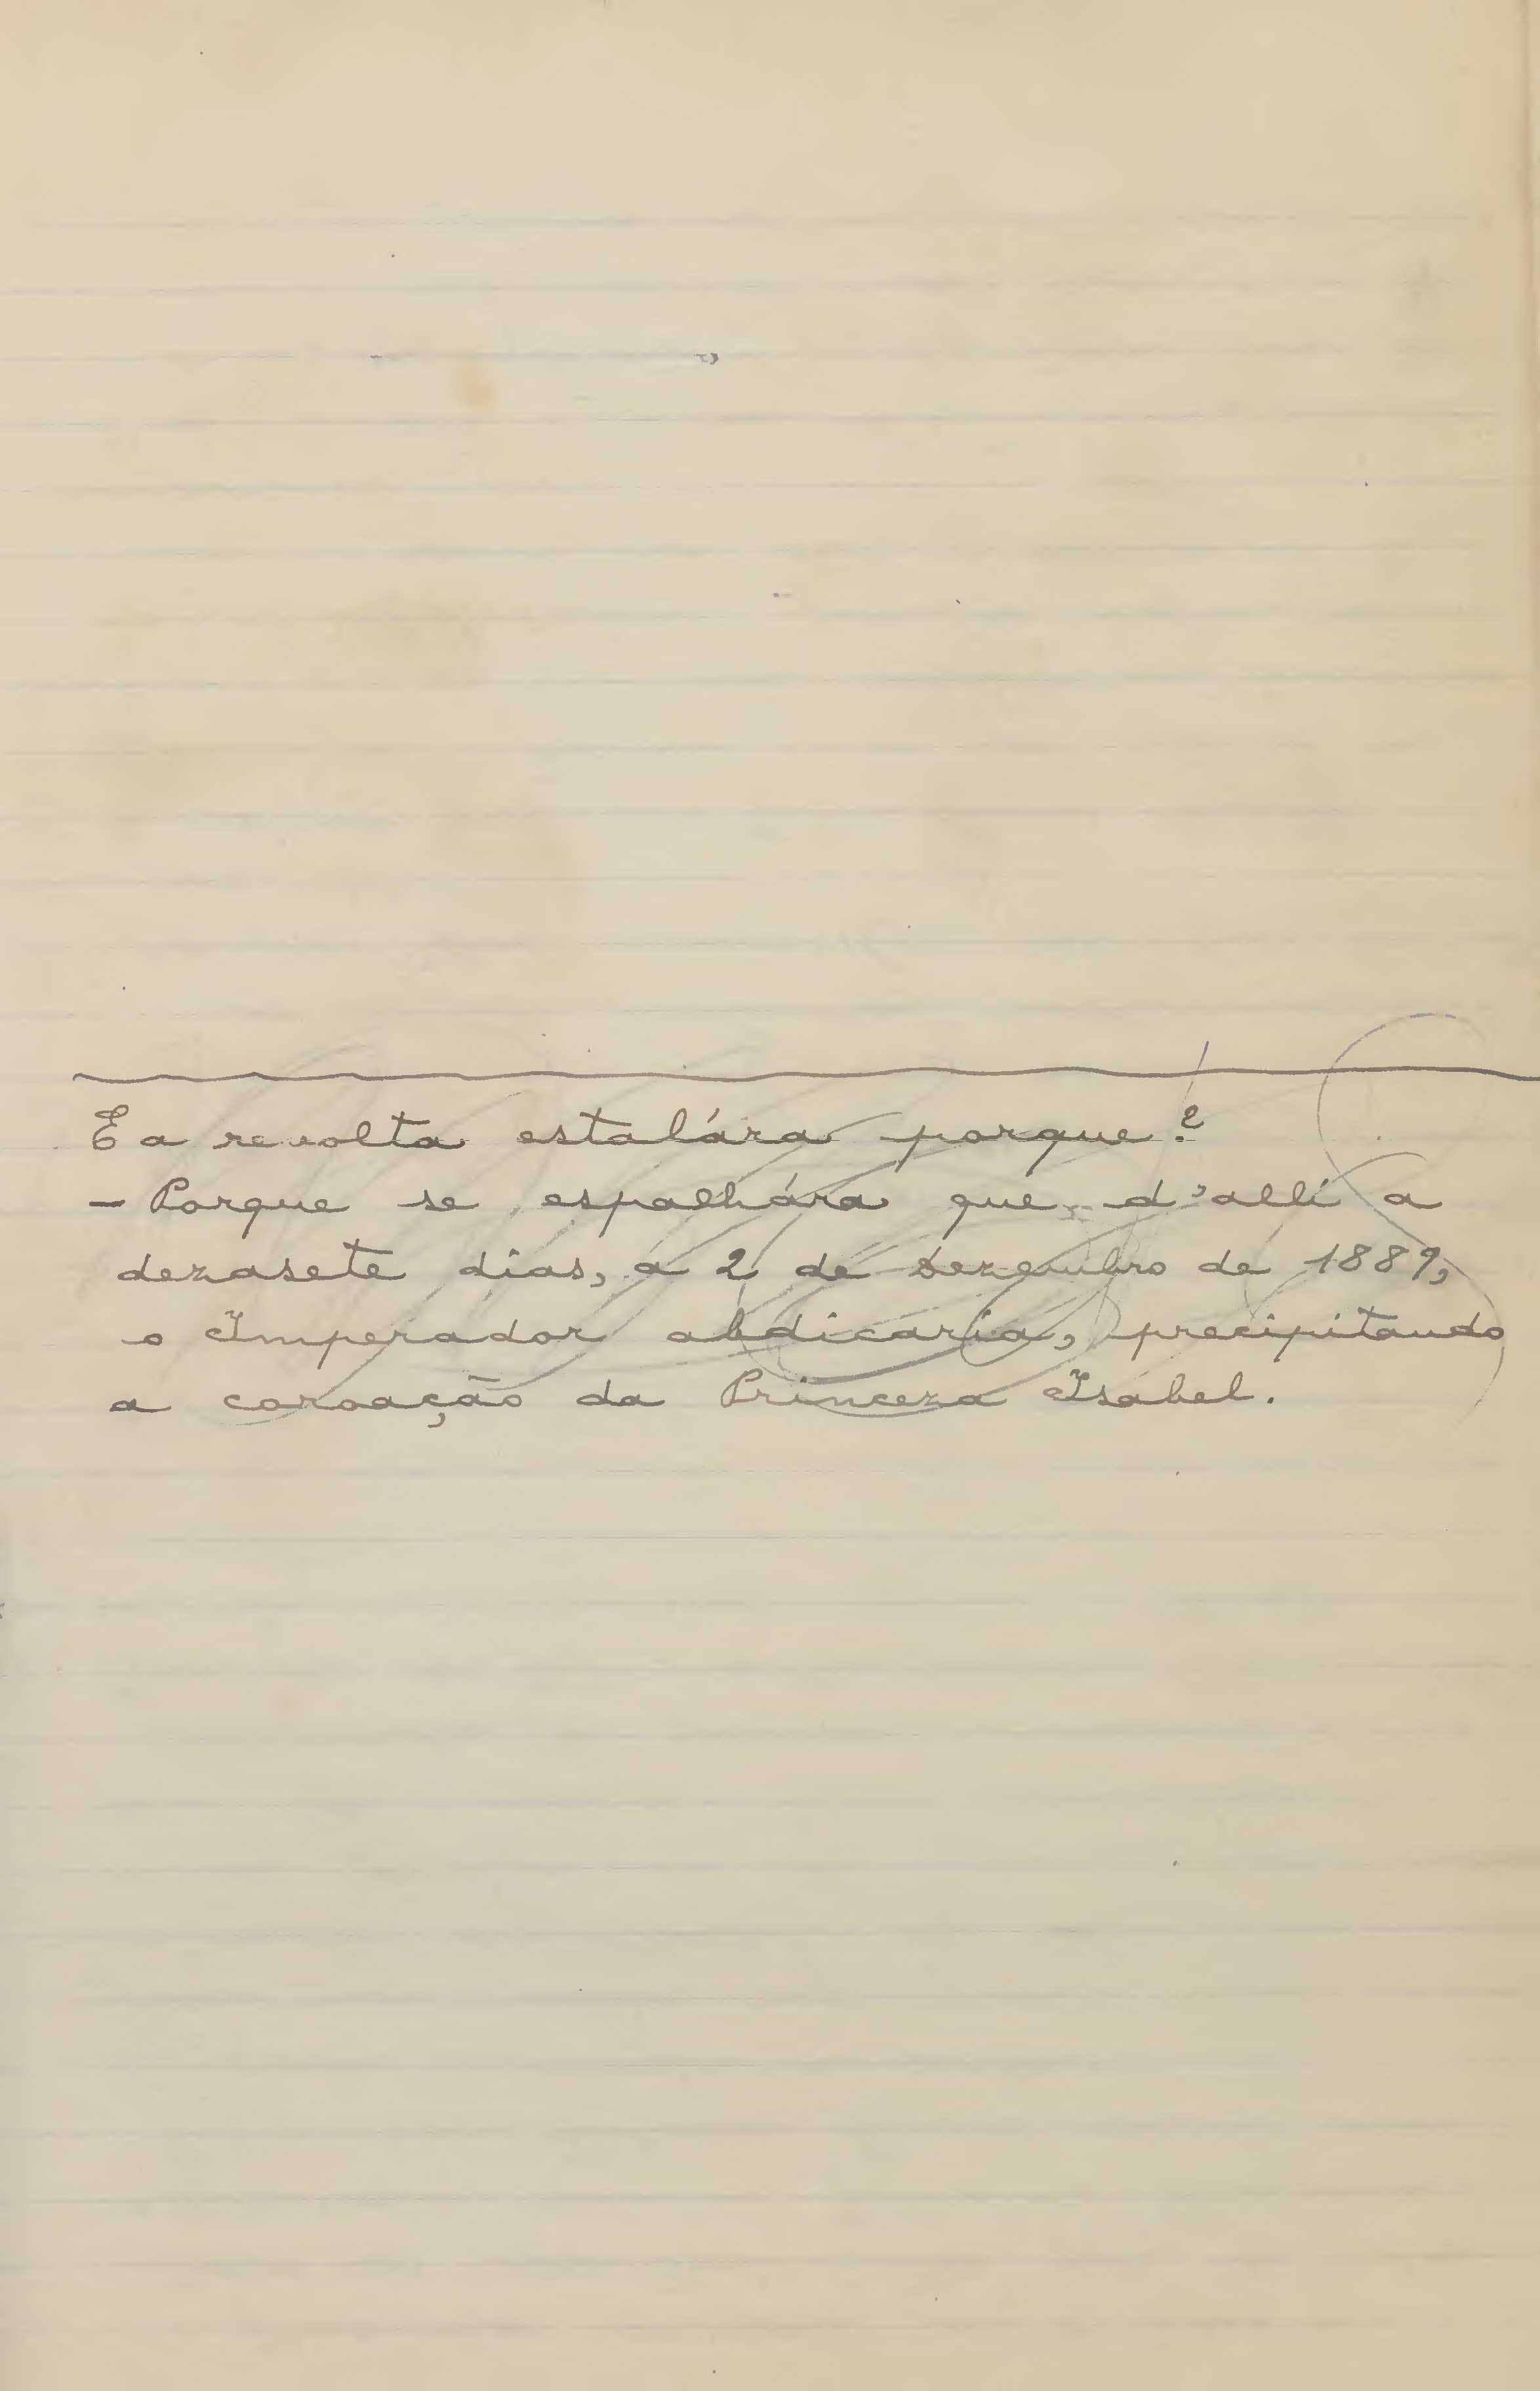 E a revolta estalára porque?
— Porque se espalhára que d'alli a
dezasete dias, a 2 de Dezembro de 1889,
o Imperador abdicaria, precipitando
a coroação da Princeza Isabel.